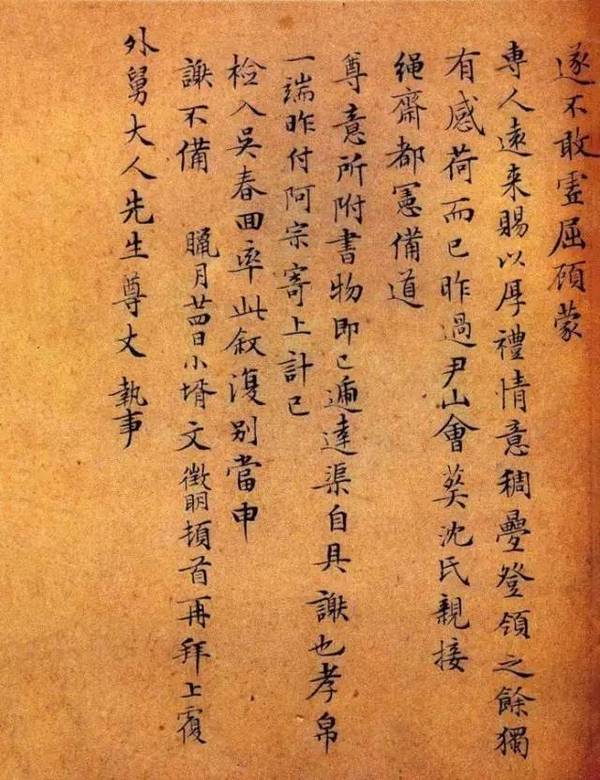 遂不敢虛屈顧蒙
專人遠來賜以厚禮情意稠疊登領之餘獨
有感荷而已昨過尹山會葬沈氏親接
繩齋都憲備道
尊意所附書物即已遞達渠自具謝也孝帛
一端昨付阿宗寄上計已
檢入吳春回率此敘復別當申
謝不備 臘月廿四日小壻文徵明頓首再拜上覆
外舅大人先生尊丈 執事